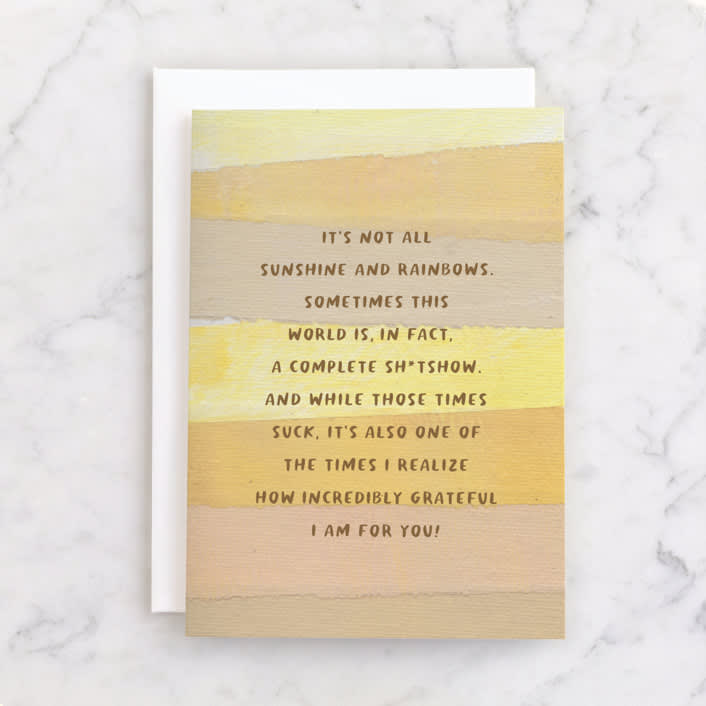 IT'S NOT ALL
SUNSHINE AND RAINBOWS.
SOMETIMES THIS
WORLD IS, IN FACT,
A COMPLETE SH*TSHOW.
AND WHILE THOSE TIMES
SUCK, IT'S ALSO ONE OF
THE TIMES I REALIZE
HOW INCREDIBLY GRATEFUL
I AM FOR YOU!